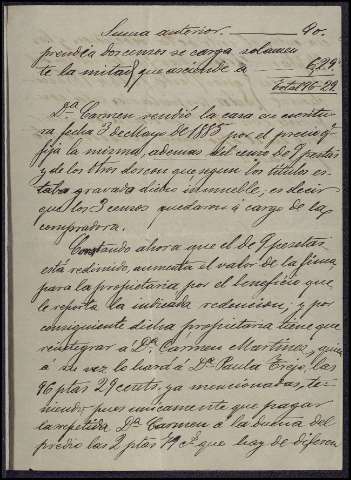 Suma anterior. 90.
prendia dos censos se carga solamen
te la mitad, que asciende a 6,29
Total 96-29.
D.ª Carmen vendió la casa en escritu
ra fecha 3 de Mayo de 1885 por el precio q.
fija la misma, ademas del censo de 9 pesetas
y de los otros dos con que segun los titulos es-
taba gravada dicho inmueble, es decir
que los 3 censos quedaron á cargo de la
compradora.
Constando ahora que el de 9 pesetas
está redimido, aumenta el valor de la finca
para la propietaria por el beneficio que
le reporta la indicada redencion; y por
consiguiente dicha propietaria tiene que
reintegrar á D.ª Carmen Martinez, y quien
á su vez lo hará á D.ª Paula Trejo, las
96 ptas 29 cents. ya mencionadas, te-
niendo pues unicamente que pagar
la repetida D.ª Carmen á la dueña del
predio las 2 ptas 79 c.s que hay de diferen